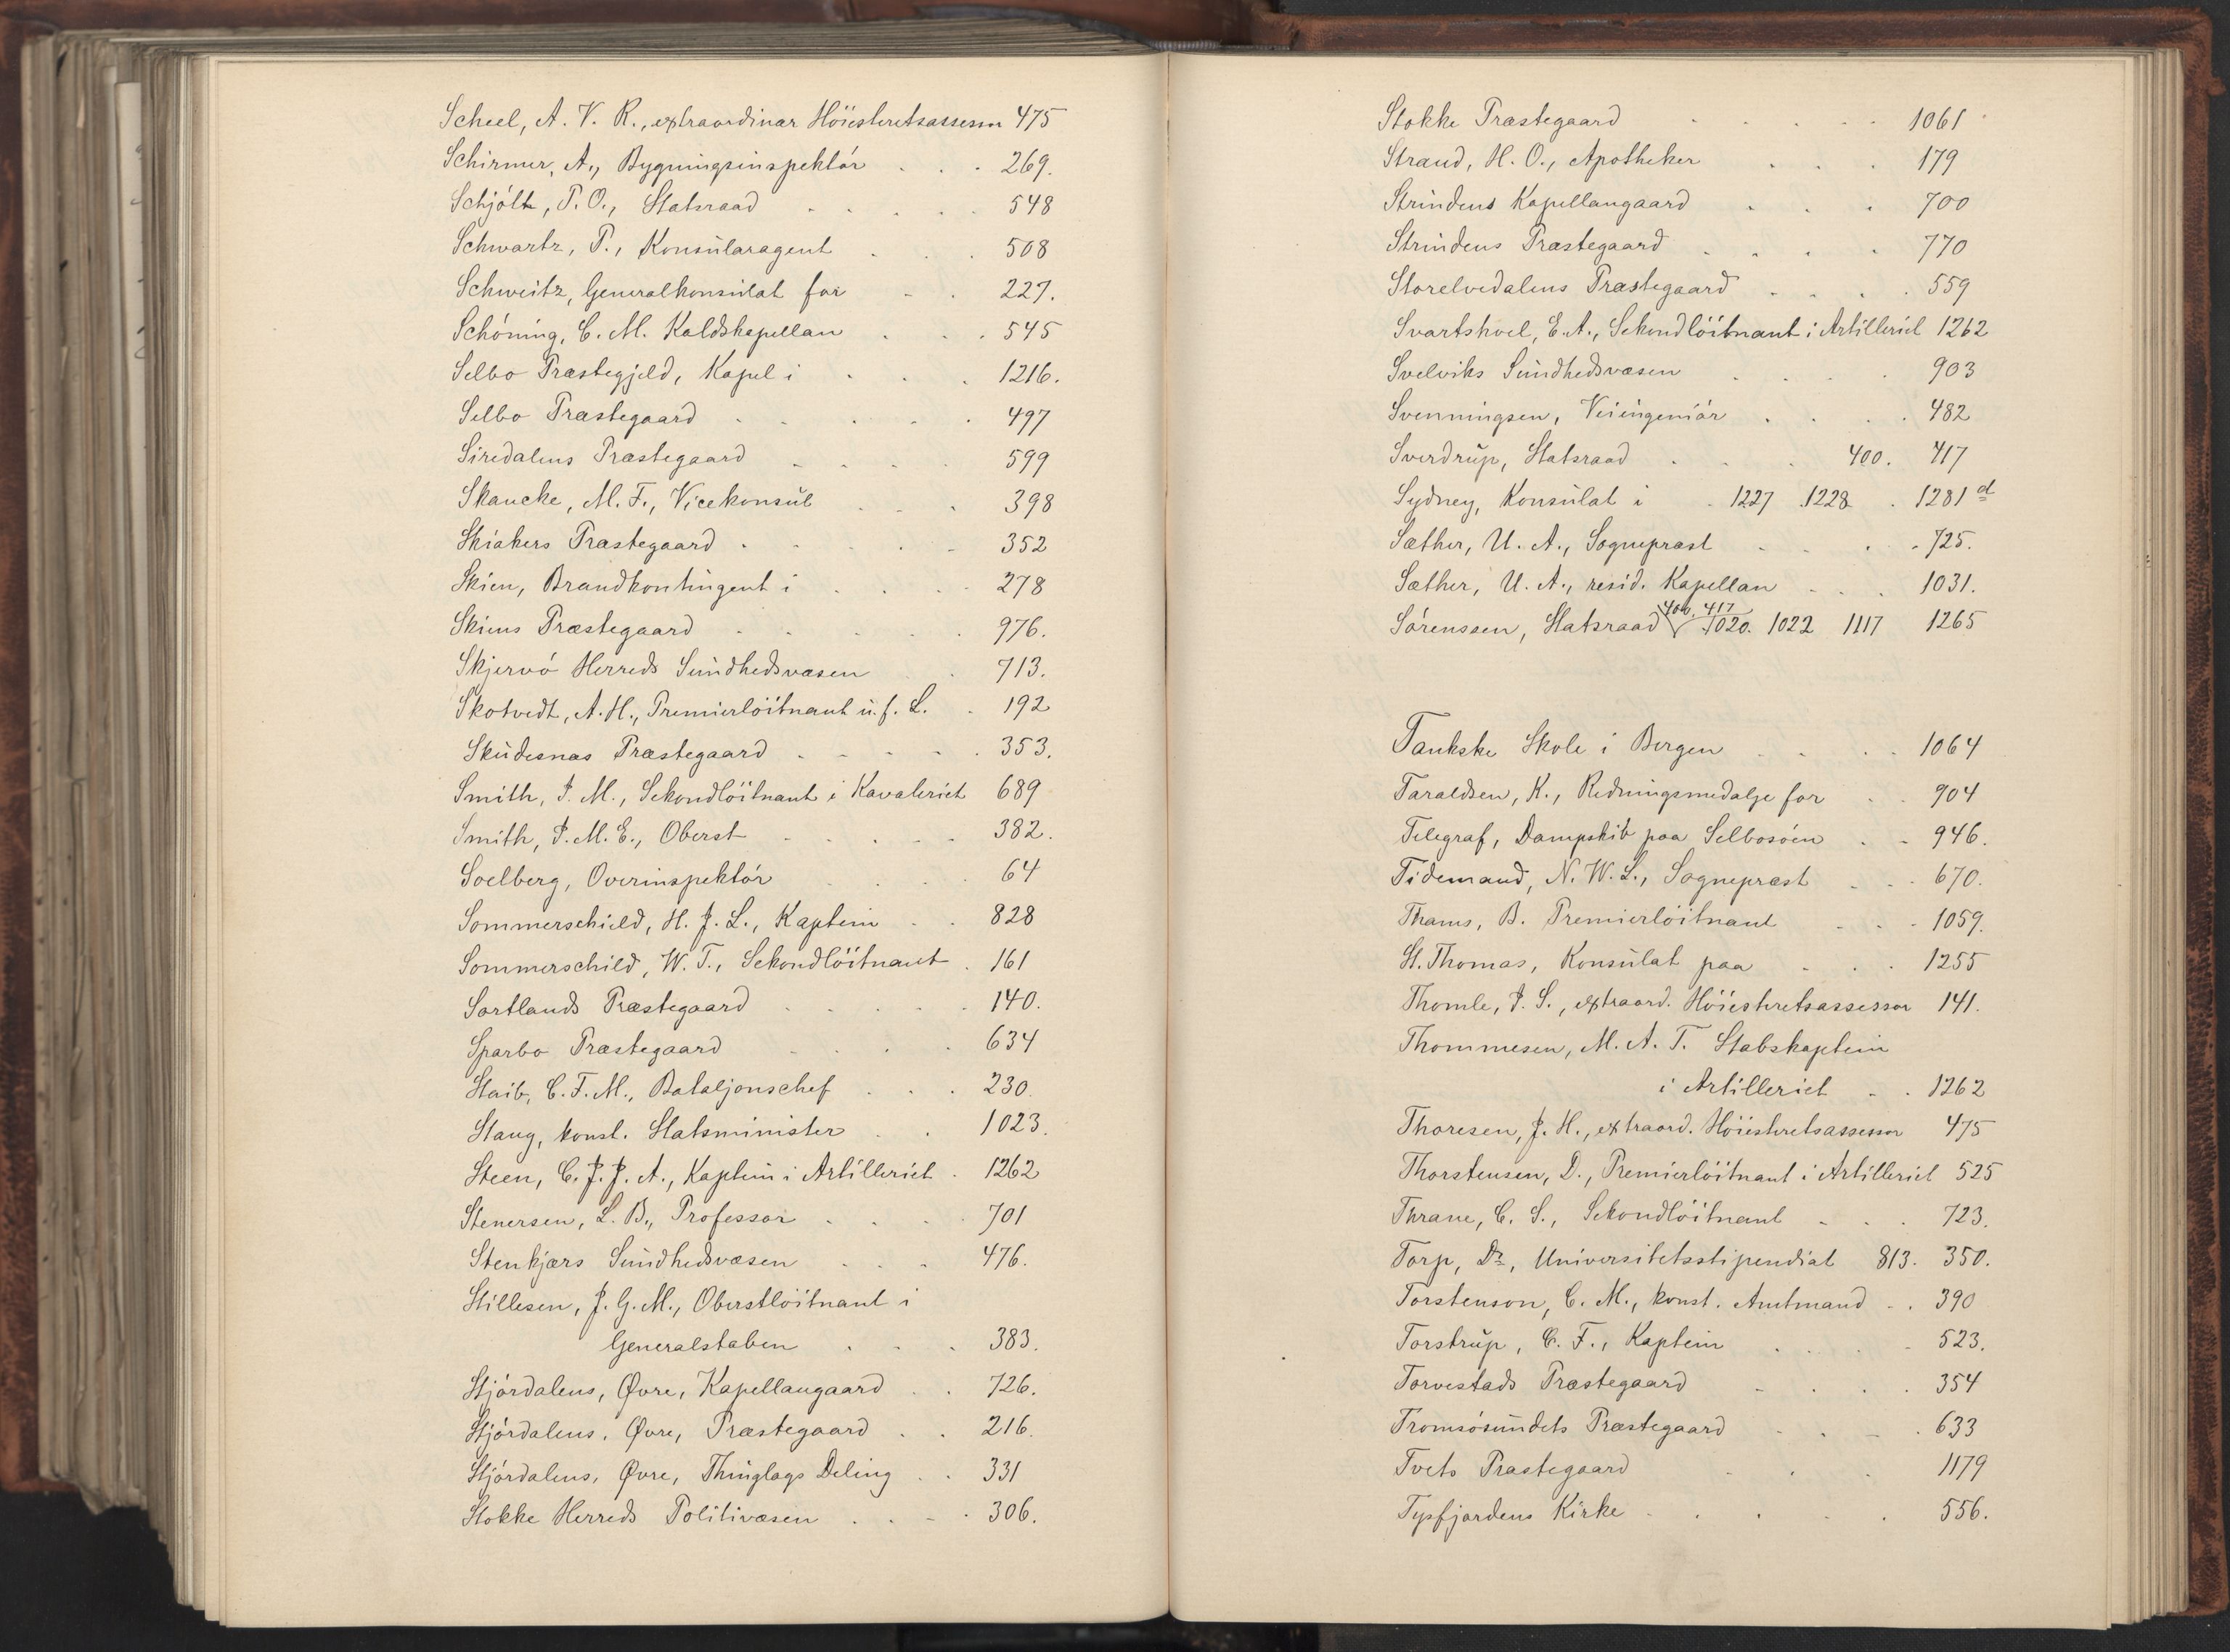 Scheel, A. V. R., extraordinær Höiesteretsassessor 475
Schirmer, A., Bygningsinspektör . . . 269.
Schjött, P. O., Statsraad . . . . . 548
Schwartz, P., Konsularagent . . . 508
Schweitz, Generalkonsulat for . . 227.
Schöning, C. M. Kaldskapellan . . . 545
Selbo Præstegjeld, Kapel i . . . 1216.
Selbo Præstegaard . . . . . 497
Siredalens Præstegaard . . . . 599
Skancke, M. F., Vicekonsul . . . 398
Skiakers Præstegaard . . . . . 352
Skien, Brandkontingent i . . . . 278
Skiens Præstegaard . . . . . 976.
Skjervö Herreds Sundhedsvæsen . . 713.
Skotvedt, A. H., Premierlöitnant u. f. L. . 192
Skudesnæs Præstegaard . . . . . 353.
Smith, J. M., Sekondlöitnant i Kavaleriet 689
Smith, J. M. E., Oberst . . . . . 382.
Soelberg, Overinspektör . . . . 64
Sommerschield, H. J. L., Kaptein . . 828
Sommerschild, W. T., Sekondlöitnant . 161
Sortlands Præstegaard . . . . . 140.
Sparbo Præstegaard . . . . 634
Staib, C. F. M., Bataljonschef . . . 230.
Stang, konst. Statsminister . . 1023.
Steen, C. J. J. A., Kaptein i Artilleriet . 1262
Stenersen, L. B., Professor . . . . 701
Stenkjærs Sundhedsvæsen . . . 476.
Stillesen, J. G. M., Oberstlöitnant i
Generalstaben . . . 383.
Stjördalens, Øvre, Kapellangaard . . 726.
Stjördalens, Øvre, Præstegaard . . 216.
Stjördalens, Øvre, Thinglags Deling . . 331
Stokke Herreds Politivæsen . . . . 306.
Stokke Præstegaard . . . . . 1061
Strand, H. O., Apotheker . . . 179
Strindens Kapellangaard . . . 700
Strindens Præstegaard . . . . 770
Storelvedalens Præstegaard . . . . 559
Svartshoel, E. A., Sekondlöitnant i Artilleriet 1262
Svelviks Sundhedsvæsen . . . . 903
Svenningsen, Veiingeniör . . . . 482
Sverdrup, Statsraad . . . 400. 417
Sydney, Konsulat i . 1227 .1228 . 1281 d
Sæther, U. A., Sogneprest . . . . 725.
Sæther, U. A., resid. Kapellan . . . 1031.
400. 417
Sörenssen, Statsraad 1020. 1022 1117 1265
Tankske Skole i Bergen . . . . 1064
Taraldsen, K., Redningsmedalje for . . 904
Telegraf, Dampskib paa Selbosöen . . 946.
Tidemand, N. W. L., Sogneprest . . . 670.
Thams, B. Premierlöitnant . . . 1059.
St. Thomas, Konsulat paa . . . 1255
Thomle, J. S., extraord. Höiesteretsassessor 141.
Thommesen, M. A. T. Stabskaptein
i Artilleriet . . 1262
Thoresen, J. H., extraord. Höiesteretsassessor 475
Thorstensen, D., Premierlöitnant i Artilleriet 525
Thrane, C. S., Sekondlöitnant . . . 723.
Torp, Dr, Universitetsstipendiat 813. 350.
Torstenson, C. M., konst. Amtmand . . 390
Torstrup, C. F., Kaptein . . . . 523.
Torvestads Præstegaard . . . . 354
Tromsösundets Præstegaard . . . . 633
Tvets Præstegaard . . . 1179
Tysfjordens Kirke . . . . . 556.